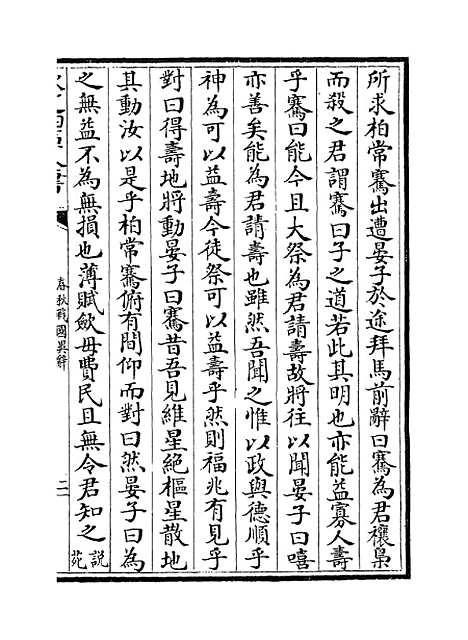 所求柏常騫出遭晏子於途拜馬前辭曰騫為君禳梟
而殺之君謂騫曰子之道若此其明也亦能益寡人壽
乎騫曰能今且大祭為君請壽故將往以聞晏子曰嘻
亦善矣能為君請壽也雖然吾聞之惟以政與德順乎
神為可以益壽今徒祭可以益壽乎然則福兆有見乎
對曰得壽地將動晏子曰騫昔吾見維星絕樞星散地
其動汝以是乎柏常騫俯有間仰而對曰然晏子曰為
之無益不為無損也薄賦歛毋費民且無令君知之說苑
春秋戰國異辭
二